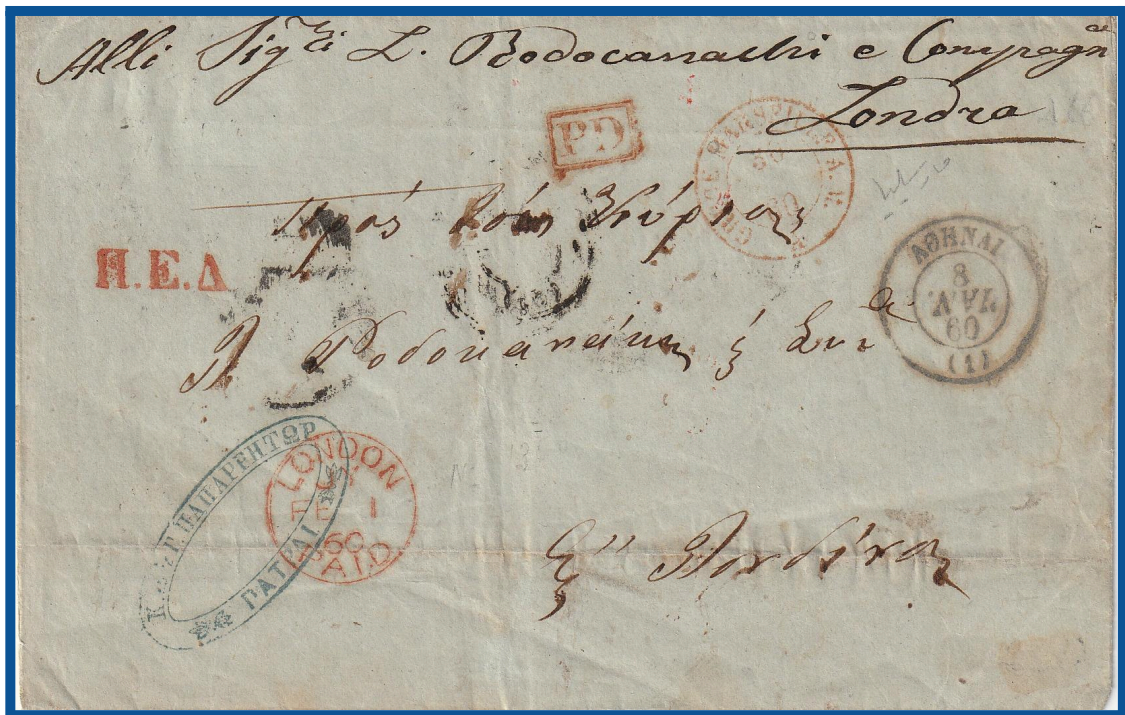 Alli Sigri L. Rodocanachi e Compagnia
Londra
P.D
MARSEILLE
πρὸς τοὺς Κυρίους
Π.Ε.Δ
ΑΘΗΝΑΙ
8
ΙΑΝ.
60
(1)
Π Ροδοκανάκη & Συνα
ΠΑΠΑΡΕΗΤΩΡ
ΠΑΤΡΑΙ
LONDON
FE 1
60
PAID
Εἰς Λονδίνον